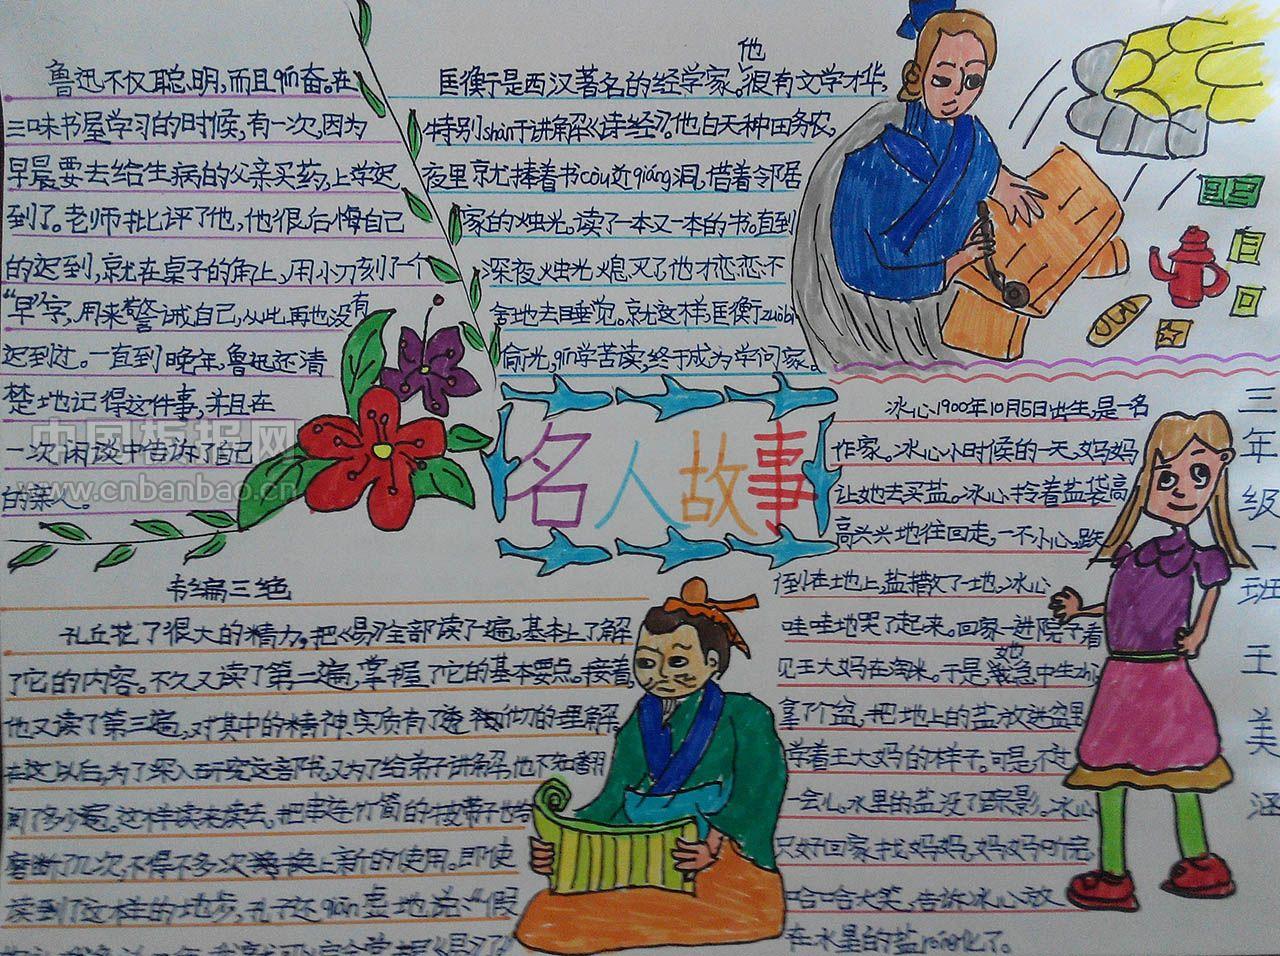 鲁迅不仅聪明,而且qin奋。在
三味书屋学习的时候,有一次,因为
早晨要去给生病的父亲买药,上学迟
到了。老师批评了他,他很后悔自己
的迟到,就在桌子的角上,用小刀刻了一个
“早”字,用来警诫自己,从此再也没有
迟到过。一直到晚年,鲁迅还清
楚地记得这件事,并且在
一次闲谈中告诉了自己
的亲人。
匡衡于是西汉著名的经学家。他很有文学才华,
特别shàn于讲解《诗经》。他白天种田务农,
夜里就捧着书còu近qiáng洞,借着邻居
家的烛光。读了一本又一本的书。直到
深夜烛光熄灭了他才恋恋不
舍地去睡觉。就这样,匡衡于zuobi
偷光,qin学苦读,终于成为学问家。
名人故事
冰心1900年10月5日出生,是一名
作家。冰心小时候的一天,妈妈
让她去买盐。冰心拎着盐袋高
高兴兴地往回走,一不小心,跌
倒在地上,盐撒了一地,冰心
哇哇地哭了起来。回家一进院子看
见王大妈在淘米。于是她急中生zhì
拿了个盆,把地上的盐放进盆里
学着王大妈的样子。可是,不过
一会儿。水里的盐没了踪影。冰心
只好回家找妈妈,妈妈听完
哈哈大笑,告诉冰心放
在水里的盐róng化了。
三年级一班王美涵
书编三绝
孔丘花了很大的精力。把《易》全部读了一遍,基本上了解
了它的内容。不久又读了第二遍,掌握了它的基本要点。接着,
他又读了第三遍,对其中的精神、实质有了透彻的理解。
在这以后,为了深入研究这部书,又为了给弟子讲解,他不知翻
阅了多少遍。这样读来读去,把串连竹简的
磨断了几次,不得不多次换上新的使用。即使
读到了这样的地步,孔子还qiān虚地说:“假
中国板报网
www.cnbanbao.cn